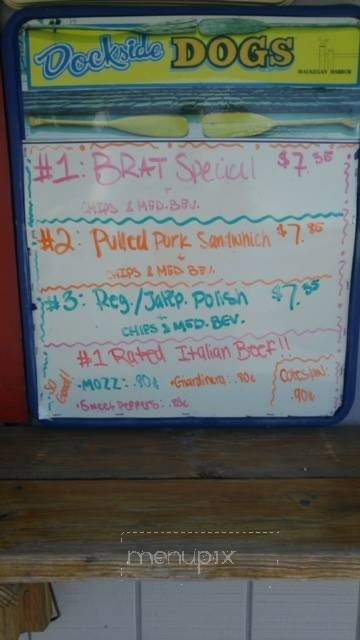 Dockside DOGS
WAUKEGAN HARBOR
#1: BRAT Special $7.35
+
CHIPS & MED. BEV.
#2: Pulled Pork Sandwhich $7.85
+
CHIPS & MED BEV.
#3: Reg./Jalap. Polish $7.35
CHIPS & MED. BEV.
#1 Rated Italian Beef!!
So Good!!
•MOZZ: .80¢ •Giardinera: .80¢
•Sweet Peppers:
Coleslaw:
.90¢
menupix